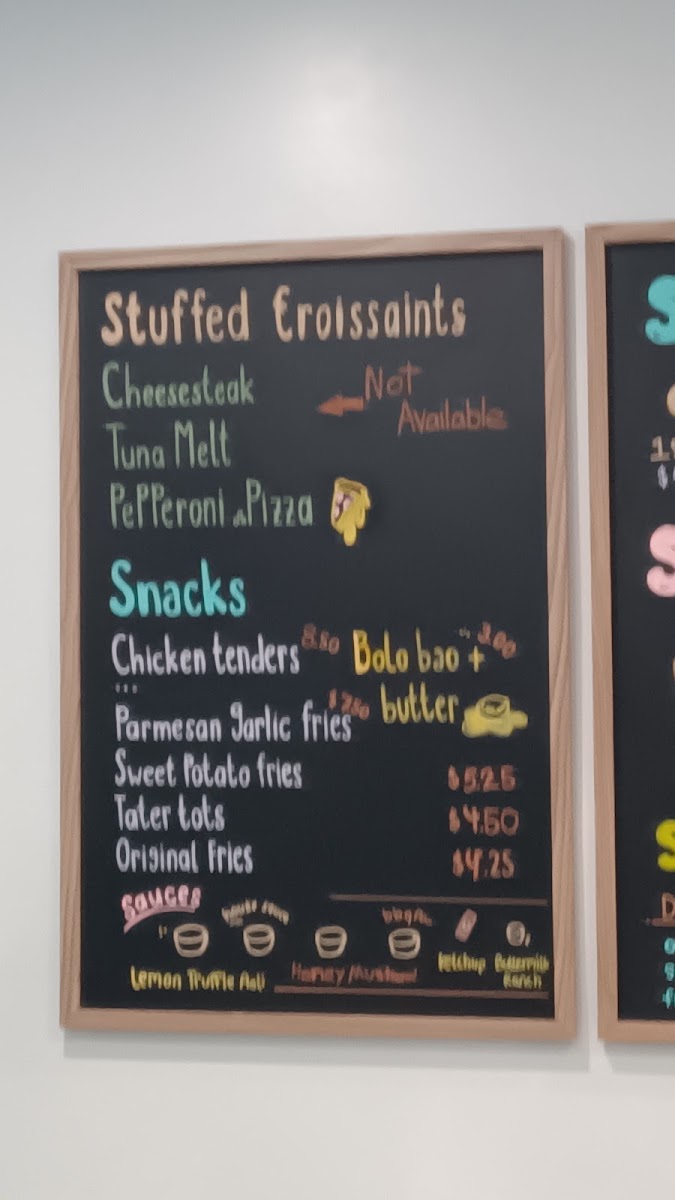 Stuffed Croissaints
Cheesesteak
Not
Available
Tuna Melt
Pepperoni Pizza
Snacks
Chicken tenders 8.50
Bolo bao + 3.00
butter
Parmesan garlic fries
Sweet Potato fries $5.25
Tater tots $4.50
Original Fries $4.25
Sauces
Lemon Truffle Aoli
Honey Mustard
ketchup
Buttermilk
Ranch